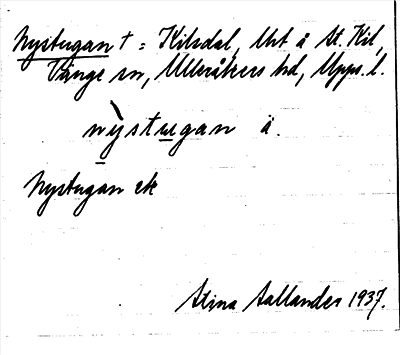 Nystugan † = Kilsdal, lht å St. Kil,
Vänge sn, Ulleråkers hd, Upps. l.
nỳstugan ä.
Nystugan ek
Stina Aallander 1937.